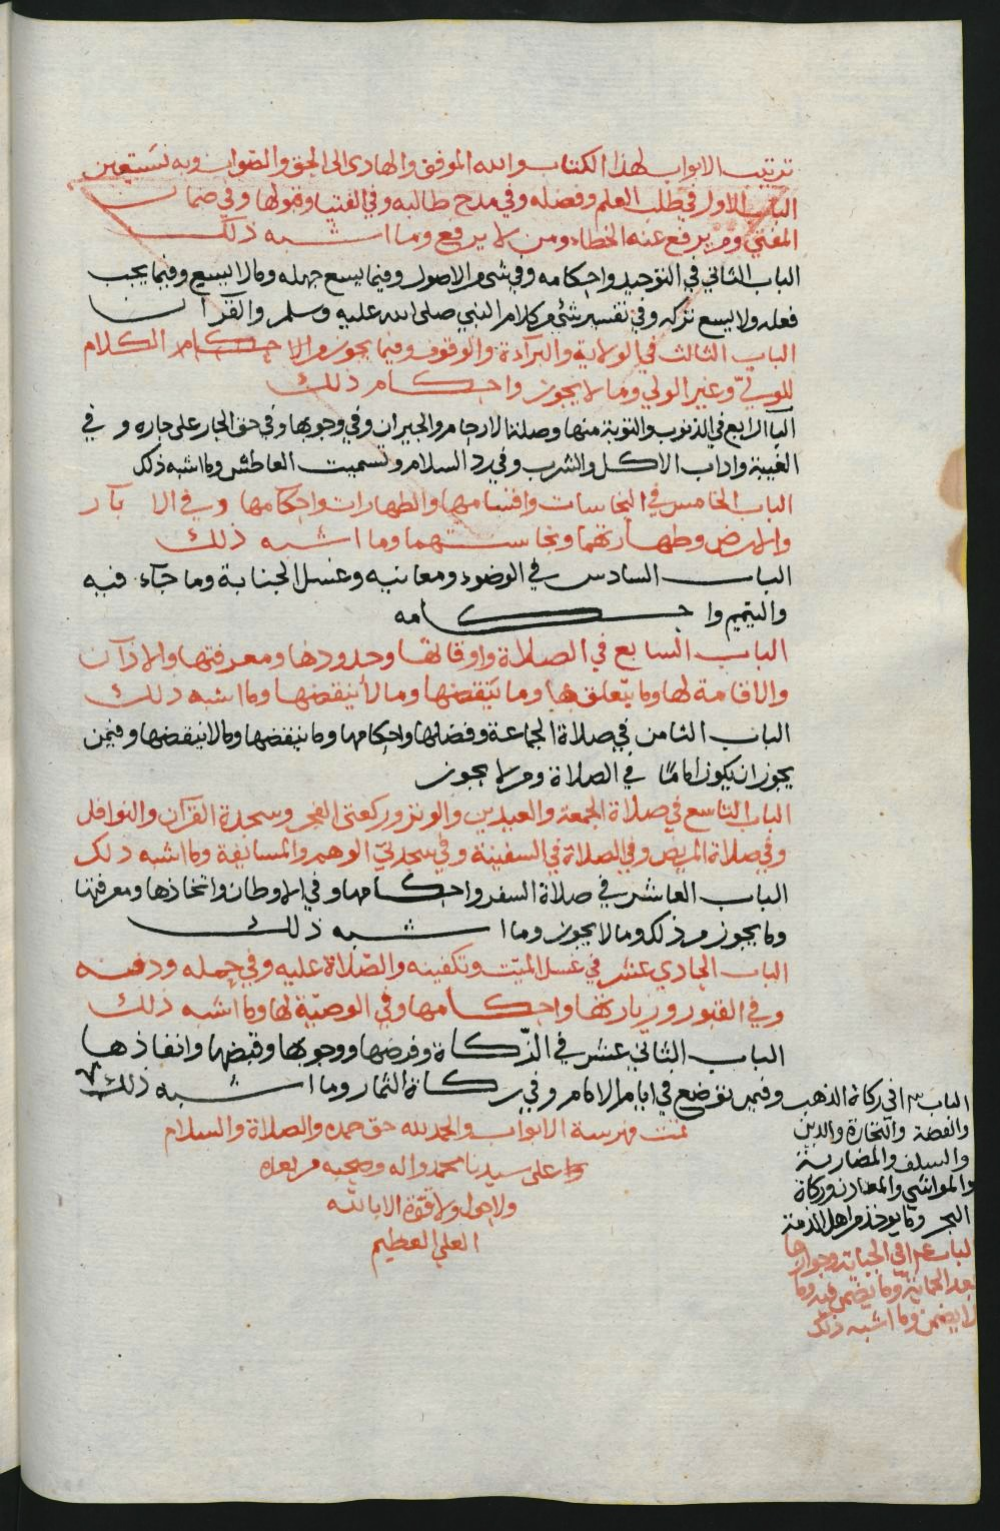 ترتيب الابواب لهذا الكتاب والله الموفق والهادي الى الحق والصواب وبه نستعين
الباب الاول في طلب العلم وفضله وفي مدح طالبه وفي الفتيا وقبولها وفي ضمان
المفتي ومن يرفع عنه الخطاء ومن لا يرفع وما اشبه ذلك
الباب الثاني في التوحيد واحكامه وفي شيء من الاصول وفيما يسع جهله وما لا يسع وفيما يجب
فعله ولا يسع تركه وفي تفسير شيء من كلام النبي صلى الله عليه وسلم والقرآن
الباب الثالث في الولاية والبرآءة والوقوف وفيما يجوز من الاحكام الكلام
للولي وغير الولي وما لا يجوز واحكام ذلك
الباب الرابع في الذنوب والتوبة منها وصلة الارحام والجيران وفي وجوبها وفي حق الجار على جاره وفي
الغيبة واداب الاكل والشرب وفي رد السلام وتسميت العاطش وما اشبه ذلك
الباب الخامس في النجاسات واقسامها والطهارات واحكامها وفي الابآر
والارض وطهارتهما ونجاستهما وما اشبه ذلك
الباب السادس في الوضوء ومعانيه وغسل الجنابة وما جآء فيه
والتيمم واحكامه
الباب السابع في الصلاة واوقاتها وحدودها ومعرفتها والاذآن
والاقامة لها وما يتعلق بها وما ينقضها وما لا ينقضها وما اشبه ذلك
الباب الثامن في صلاة الجماعة وفضلها واحكامها وما ينقضها وما لا ينقضها وفيمن
يجوز ان يكون اماما في الصلاة ومن لا يجوز
الباب التاسع في صلاة الجمعة والعيدين والوتر وركعتي الفجر وسجدة القرآن والنوافل
وفي صلاة المريض وفي الصلاة في السفينة وفي سجدتي الوهم والمسايفة وما اشبه ذلك
الباب العاشر في صلاة السفر واحكامها وفي الاوطان واتخاذها ومعرفتها
وما يجوز من ذلك وما لا يجوز وما اشبه ذلك
الباب الحادي عشر في غسل الميت وتكفينه والصلاة عليه وفي حمله ودفنه
وفي القبور وزيارتها واحكامها وفي الوصية لها وما اشبه ذلك
الباب الثاني عشر في الزكاة وفرضها ووجوبها وقبضها وانفاذها
وفيمن توضع في ايام الامام وفي زكاة الثمار وما اشبه ذلك
تمت فهرسة الابواب والحمد لله حق حمده والصلاة والسلام
على سيدنا محمد واله وصحبه من بعده
ولا حول ولا قوة الا بالله
العلي العظيم
الباب ١٣ في زكاة الذهب
والفضة والتجارة والدين
والسلف والمضاربة
والمواشي والمعادن وزكاة
البحر وما يوخذ من اهل الذمة
الباب ١٤ في الجباية وجوازها
بعد الحماية وما يضمن فيه وما
لا يضمن وما اشبه ذلك